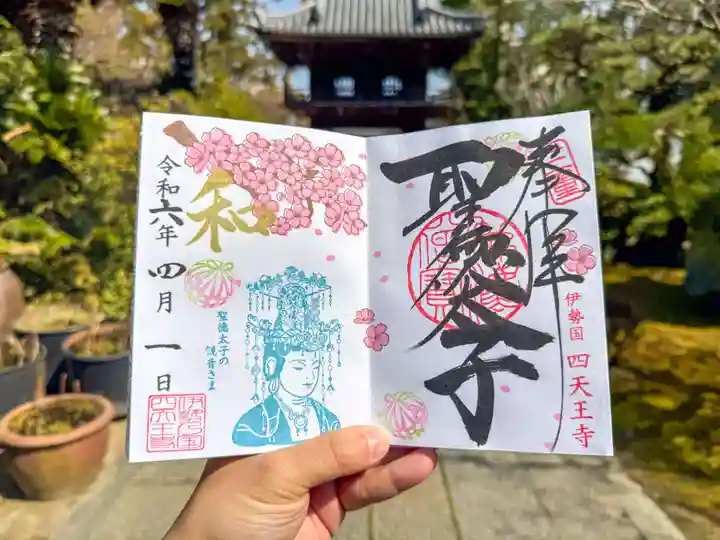 奉拝
聖徳太子
伊勢国 四天王寺
和
令和六年 四月 一日
聖徳太子の
観音さま